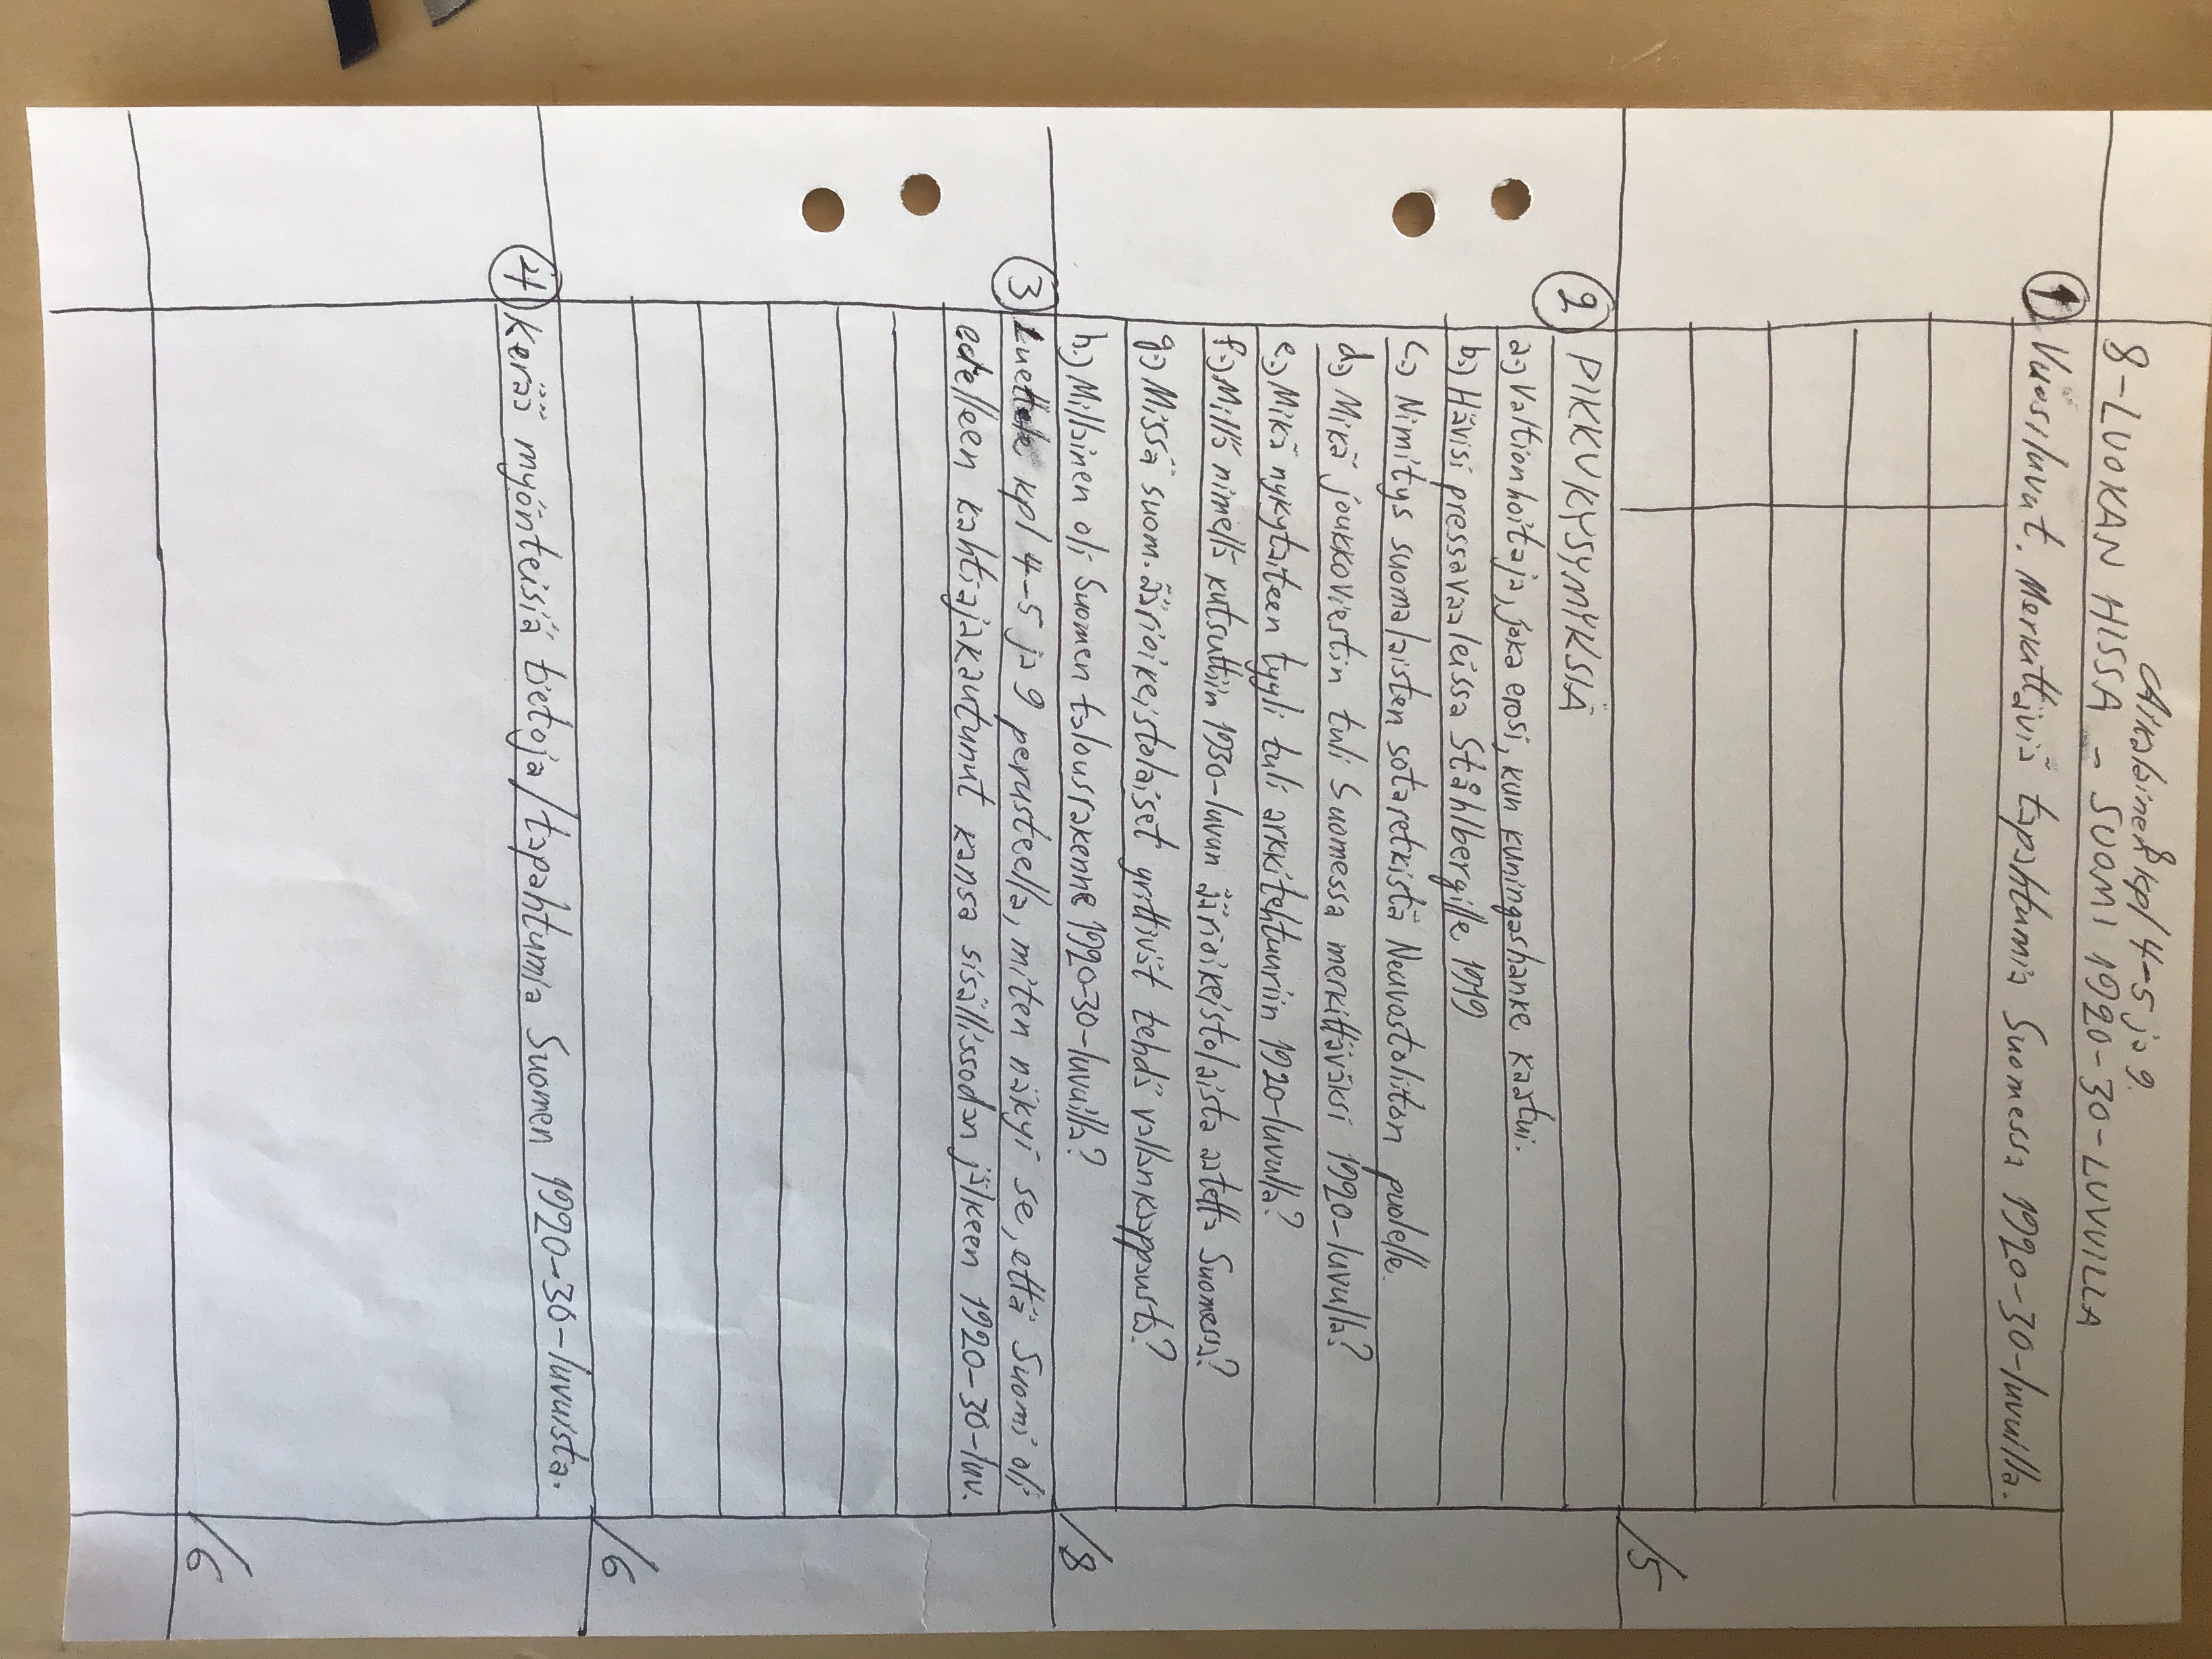 Alkalainek kpl 4-5 ja 9.
8-LUOKAN HISSA - SUOMI 1920-30-LUVUILLA
1 Vuosiluvut. Merkittäviä tapahtumia Suomessa 1920-30-luvuilla.
/5
2 PIKKUKYSYMYKSIÄ
a.) Valtionhoitaja, joka erosi, kun kuningashanke kaatui.
b.) Hävisi pressavaaleissa Ståhlbergille 1919
c.) Nimitys suomalaisten sotaretkistä Neuvostoliiton puolelle.
d.) Mikä joukkoviestin tuli Suomessa merkittäväksi 1920-luvulla?
e.) Mikä nykytaiteen tyyli tuli arkkitehtuuriin 1920-luvulla?
f.) Millä nimellä kutsuttiin 1930-luvun äärioikeistolaista aatetta Suomessa?
g.) Missä suom. äärioikeistolaiset yrittivät tehdä vallankaappausta?
h.) Millainen oli Suomen talousrakenne 1920-30-luvuilla?
/8
3 Luettele kpl 4-5 ja 9 perusteella, miten näkyi se, että Suomi oli
edelleen kahtiajakautunut kansa sisällissodan jälkeen 1920-30-luv.
/6
4 Kerää myönteisiä tietoja/tapahtumia Suomen 1920-30-luvuista.
/6